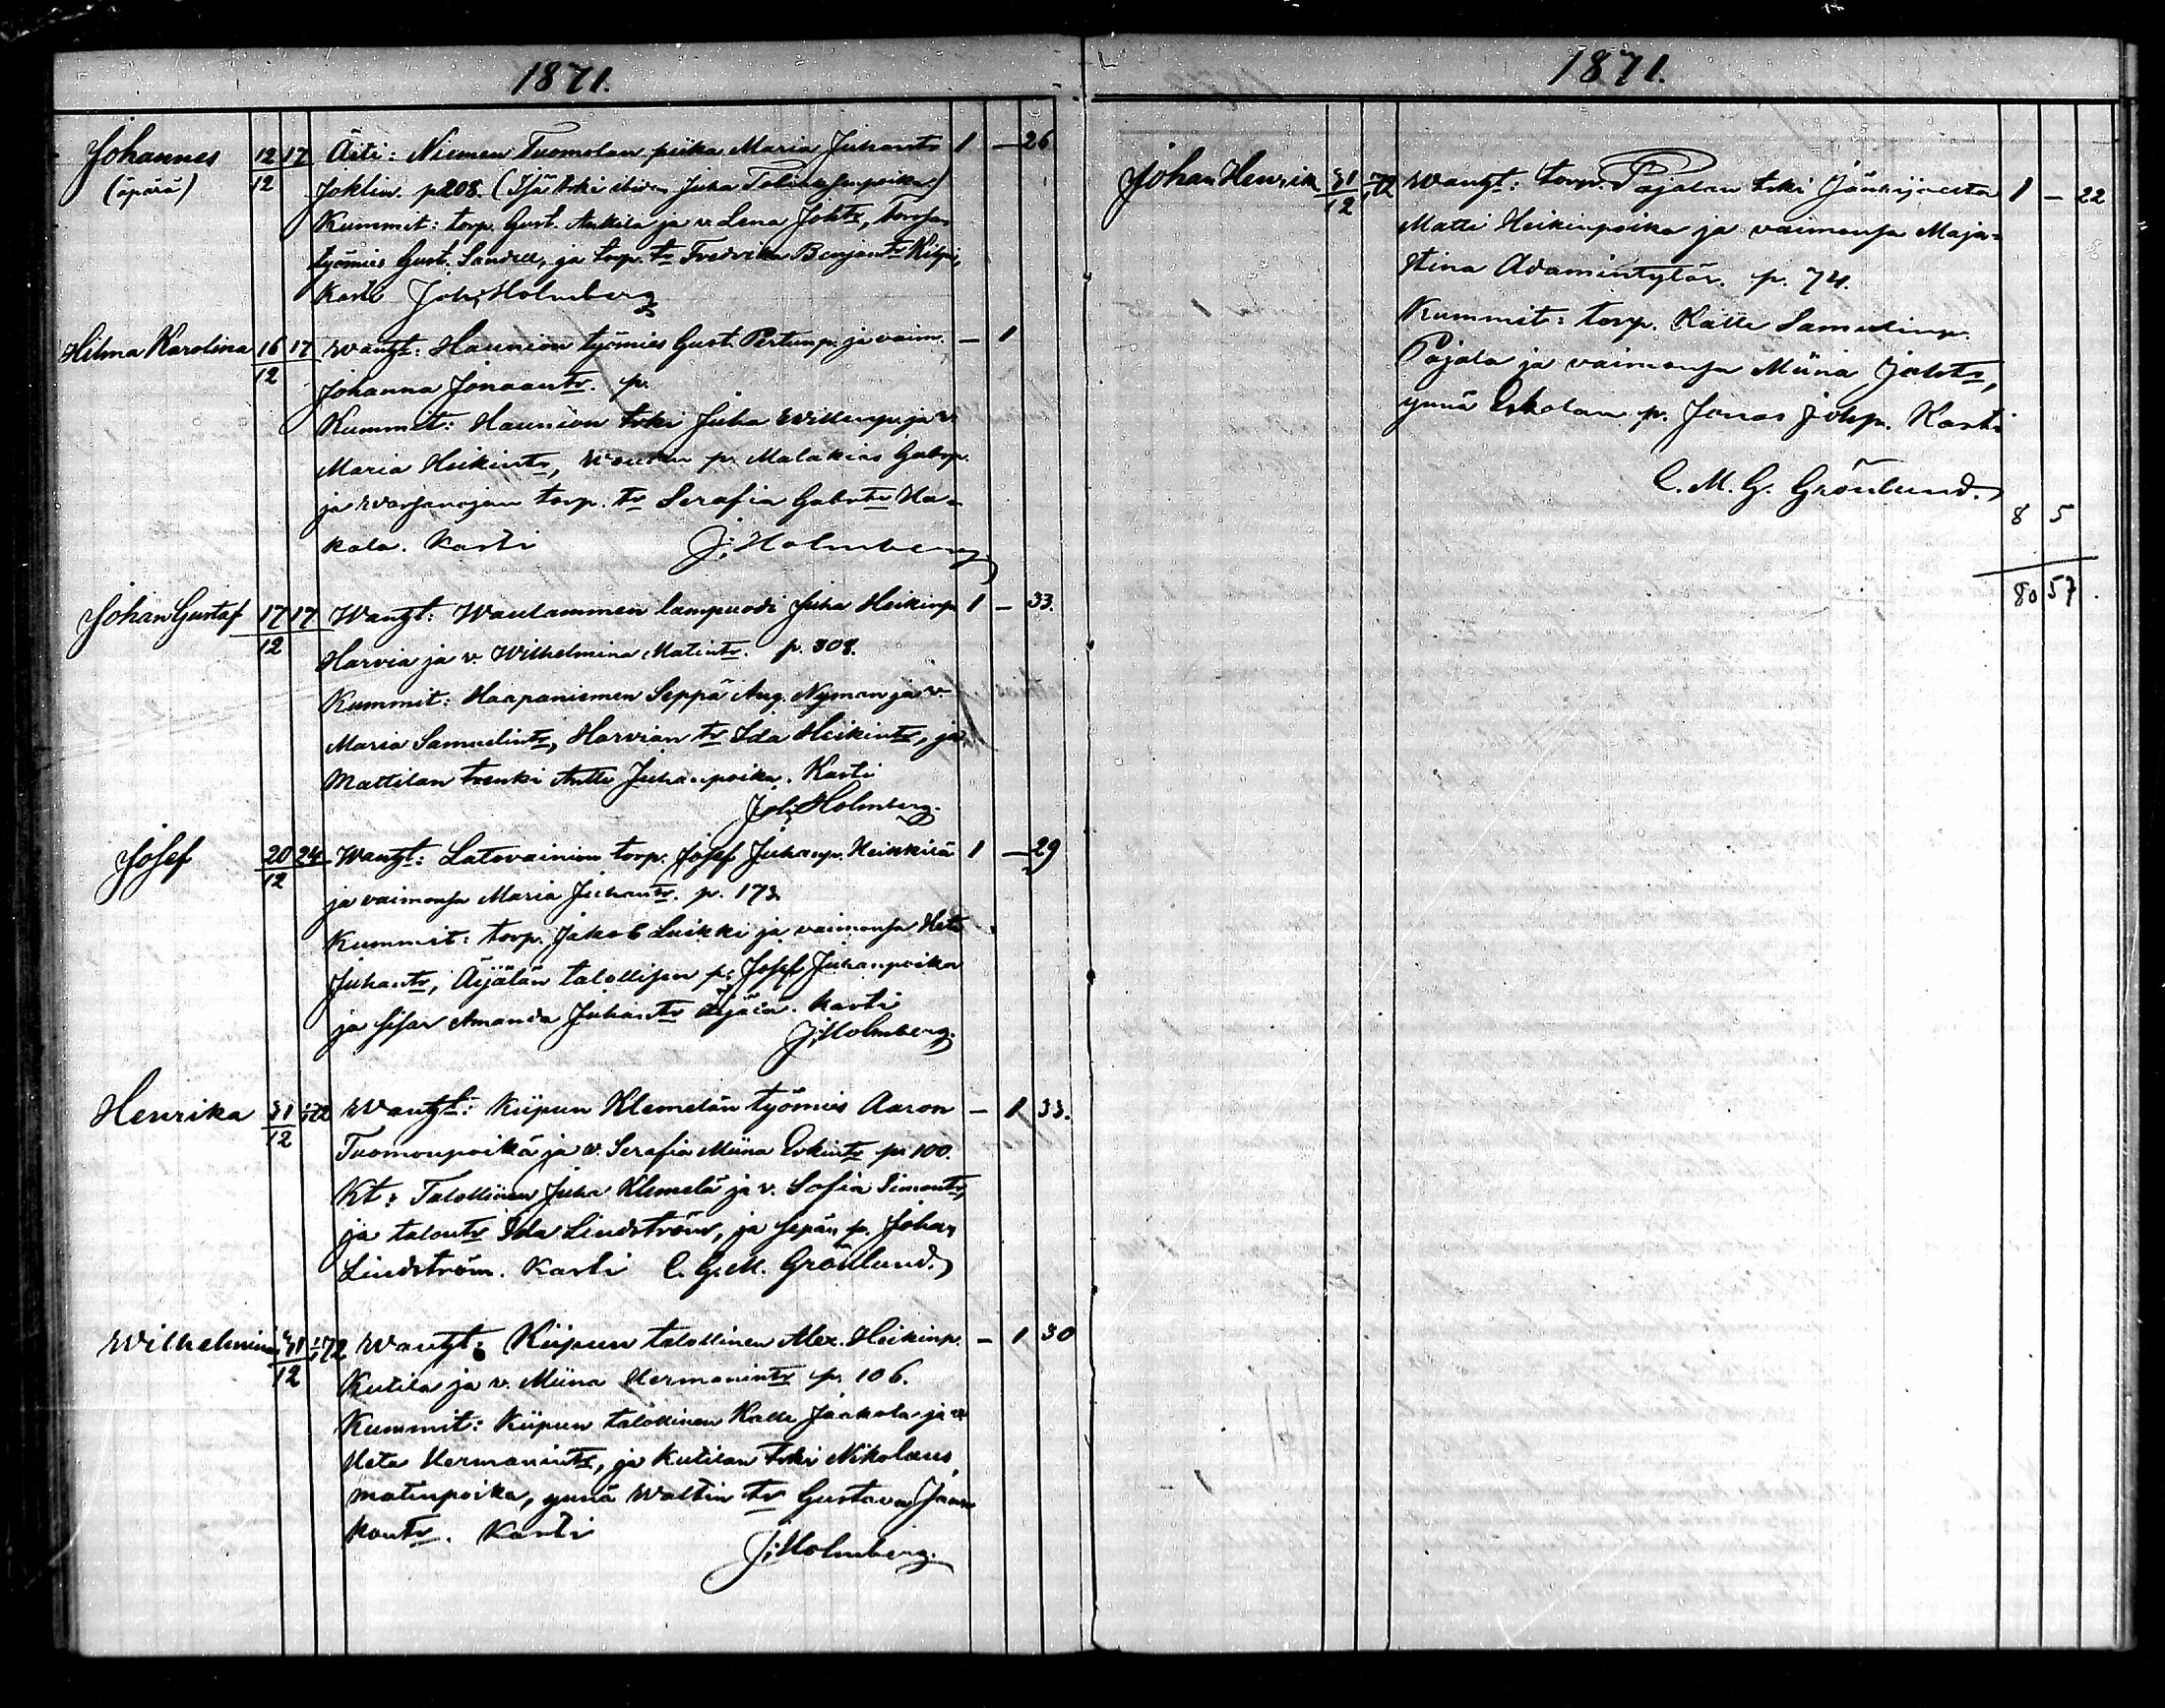 1871.
Johannes 12 17 Äiti: Niemen Tuomolan piika Maria Juhantr 1 — 26
(äpärä) 12 Joklin. p 208. (Isä trki itiven Juha Tobiaksenpoika)
Kummit: torp. Gust. Ankila ja v. Lena Johtr,
työmies Gust. Sandell, ja torp. tr Fredrika Benjamtr Kilpi,
Kasti Joh; Holmberg
Hilma Karolina 16 17 Wanht: Haunion työmies Gust. Pertunp. ja vaim. — 1
12 Johanna Jonaantr. p.
Kummit: Haunion trki Juha Willenp. ja v.
Maria Heikintr, p. Malakias Gabrp.
ja torp. tr Serafia Gabrtr Ha-
kala. Kasti J; Holmberg
Johan Gustaf 17 17 Wanht: Wautammen lampuodi Juha Heikinp. 1 — 33.
12 Harvia ja v. Wilhelmina Matintr. p. 308.
Kummit: Haapaniemen Seppä Aug. Nyman ja v.
Maria Samuelintr, Harvian tr Ida Heikintr, ja
Mattilan trenki Antti Juhanpoika. Kasti
Joh; Holmberg.
Josef 20 24 Wanht: Latovainion torp. Josef Juhanp. Heikkilä 1 — 29
12 ja vaimonsa Maria Juhantr. p. 173.
Kummit: torp. Jakob Luikki ja vaimonsa Heta
Juhantr, Äijälän talollisen p. Josef Juhanpoika
ja sisar Amanda Juhantr Äijälä. Kasti
J; Holmberg.
Henrika 31 1/1 72 Wanht: Kiipun Klemelän työmies Aaron — 1 33.
12 Tuomonpoika ja v. Serafia Miina Erkintr p. 100.
Kt: Talollinen Juha Klemelä ja v. Sofia Simontr,
ja talontr Ida Lindström, ja sepän p. Johan
Lindström. Kasti C. G. M. Grönlund.
Wilhelmina 31 1/1 72 Wanht: Kiipun talollinen Alex. Heikinp. — 1 30
12 Kutila ja v. Miina Hermanintr p. 106.
Kummit: Kiipun talollinen Kalle Jaakola ja v.
Heta Hermanintr, ja Kutilan trki Nikolaus
Matinpoika, ynnä Waltin tr Gustava Jaa-
kontr. Kasti
J; Holmberg.
1871.
Johan Henrik 31 1/1 72 Wanht: torp. Pajalan trki Jänhijoelta 1 — 22
12 Matti Heikinpoika ja vaimonsa Maja-
Stina Adamintytär. p. 74.
Kummit: torp. Kalle Samulinp.
Pajala ja vaimonsa Miina Johtr,
ynnä Eskolan p. Jonas Johp. Kasti
C. M. G. Grönlund.
8 5
80 57.